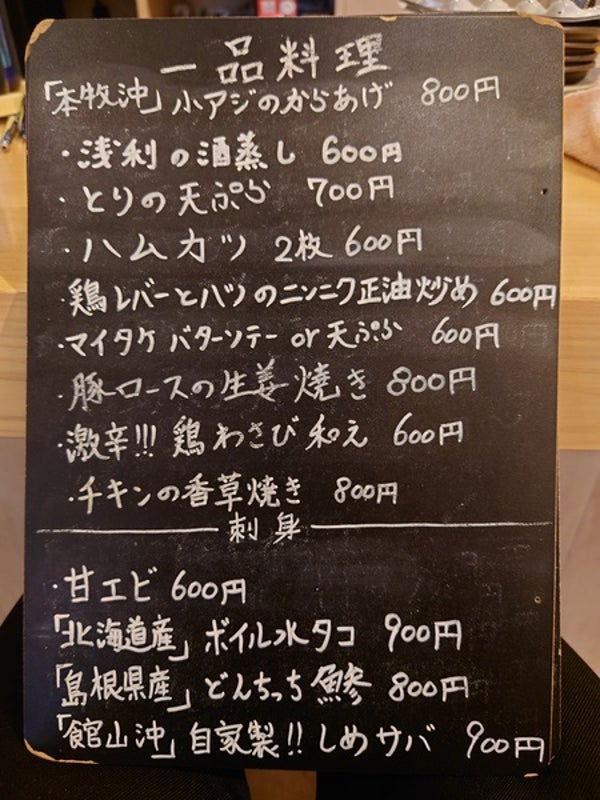 一品料理
「本牧沖」小アジのからあげ 800円
・浅利の酒蒸し 600円
・とりの天ぷら 700円
・ハムカツ 2枚 600円
・鶏レバーとハツのニンニク正油炒め 600円
・マイタケ バターソテー or 天ぷら 600円
・豚ロースの生姜焼き 800円
・激辛!!! 鶏わさび和え 600円
・チキンの香草焼き 800円
刺身
・甘エビ 600円
「北海道産」ボイル水タコ 900円
「島根県産」どんちっち鯵 800円
「館山沖」自家製!! しめサバ 900円